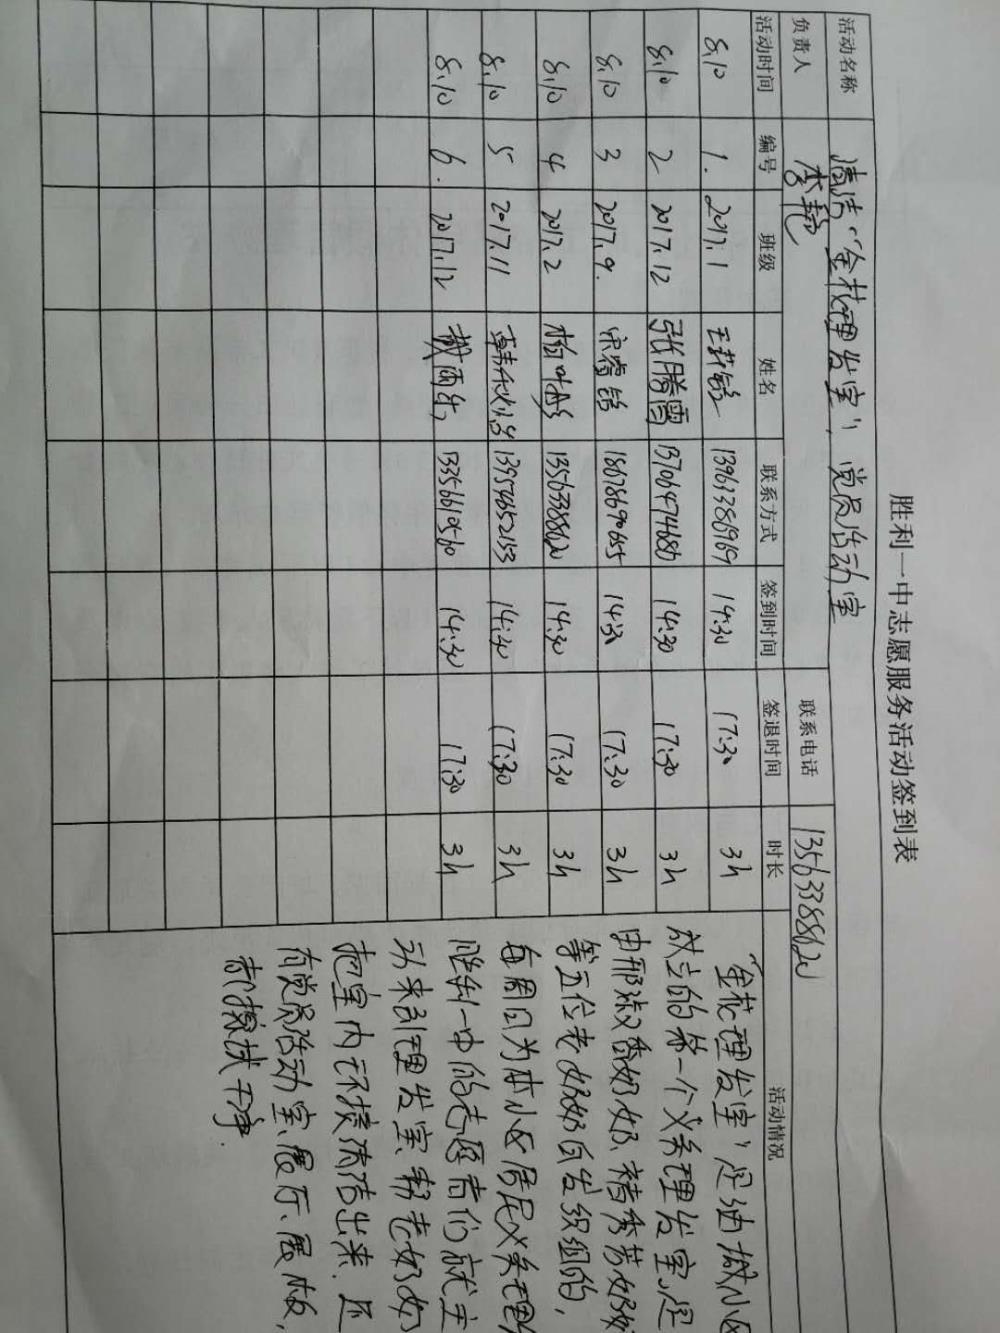 胜利一中志愿服务活动签到表
活动名称 清洁“金花理发室”,党员活动室
负责人 李艳 联系电话 13563388620
活动时间 编号 班级 姓名 联系方式 签到时间 签退时间 时长 活动情况
8.10 1. 2017.1 王莉 14:30 17:30 3h
8.10 2 2017.12 张腾雪 13706474680 14:30 17:30 3h
8.10 3 2017.9. 宋睿铭 18678690655 14:30 17:30 3h
8.10 4 2017.2 杨叶彤 13563388620 14:30 17:30 3h
8.10 5 2017.11 韩 13954652153 14:30 17:30 3h
8.10 6. 2017.12 戴雨生 13356610560 14:30 17:30 3h
“金花理发室”是油城小区
成立的第一个义务理发室,是
由那淑香奶奶、褚秀芳奶奶
等五位老奶奶自发组织的,
每周日为本小区居民义务理
胜利一中的志愿者们就主
动来到理发室,帮老奶奶
把室内环境清洁出来.还
有党员活动室、展厅、展板,
都擦拭干净.